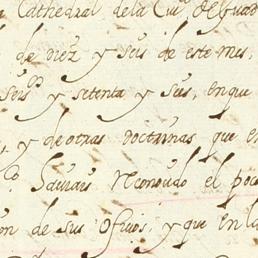 Cathedral de la Ciu.ᵈ de Guad
de diez y seis de este mes,
seisᵒˢ y setenta y seis, en que
, y de otras doctrinas que en
el poco
on de sus oficios, y que en la